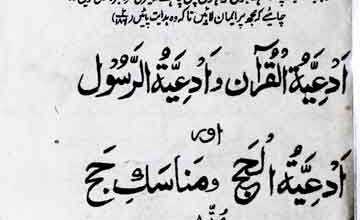 چاہیئے کہ مجھ پر ایمان لائیں تاکہ وہ ہدایت پائیں
اَدْعِیَۃُ الْقُرْآن وَ اَدْعِیَۃُ الرَّسُوْل
اور
اَدْعِیَۃُ الْحَجّ وَ مَنَاسَكِ حَجّ